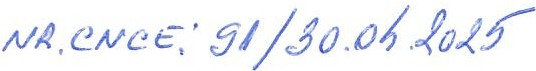 NR. CNCE: 91/30.04.2025